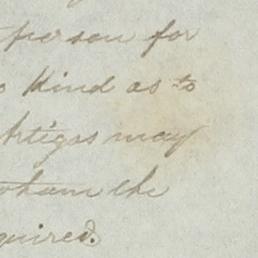 person for
kind as to
Artigas may
whom the
quired.